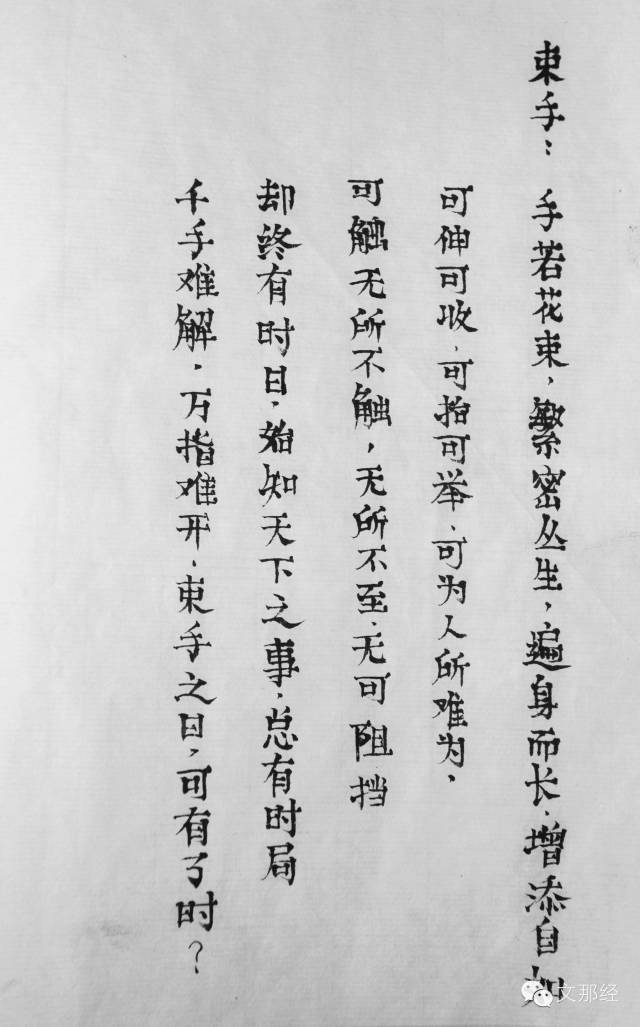 束手：手若花束，繁密丛生，遍身而长、增添自如
可伸可收、可抬可举、可为人所难为，
可触无所不触，无所不至、无可阻挡
却终有时日，始知天下之事，总有时局
千手难解，万指难开、束手之日，可有了时？
文那经